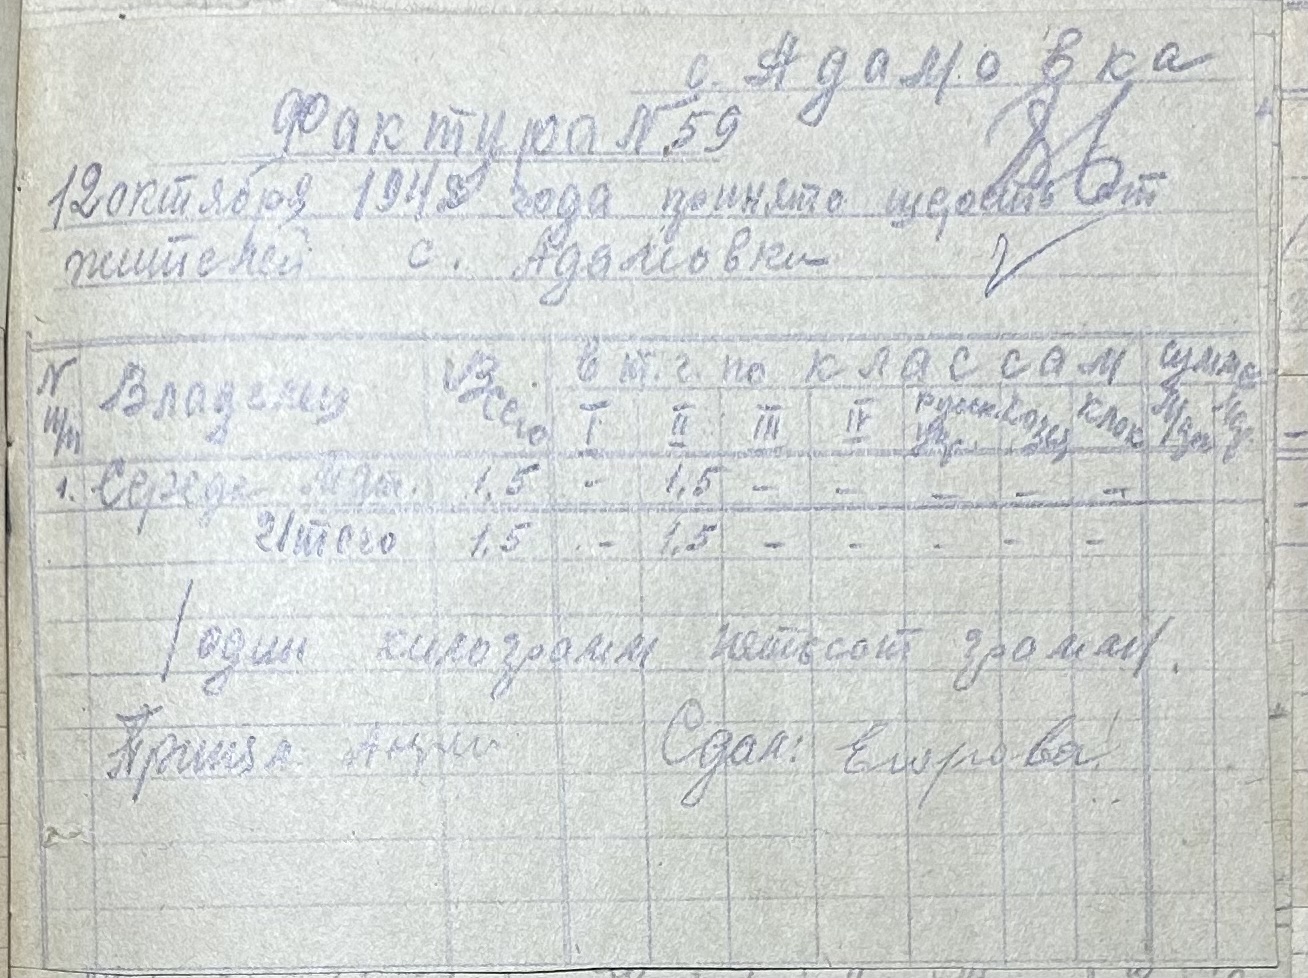 с. Адамовка
Фактура N 59
12 октября 1942 года принято шерсть от
жителей с. Адамовки
N п/п Владелец Всего в т. ч. по классам сумма
I II III IV клок
1. Середа 1,5 - 1,5 - - - - -
Итого 1,5 - 1,5 - - - - -
/один килограмм пятьсот грамм/.
Принял Сдал: Егорова